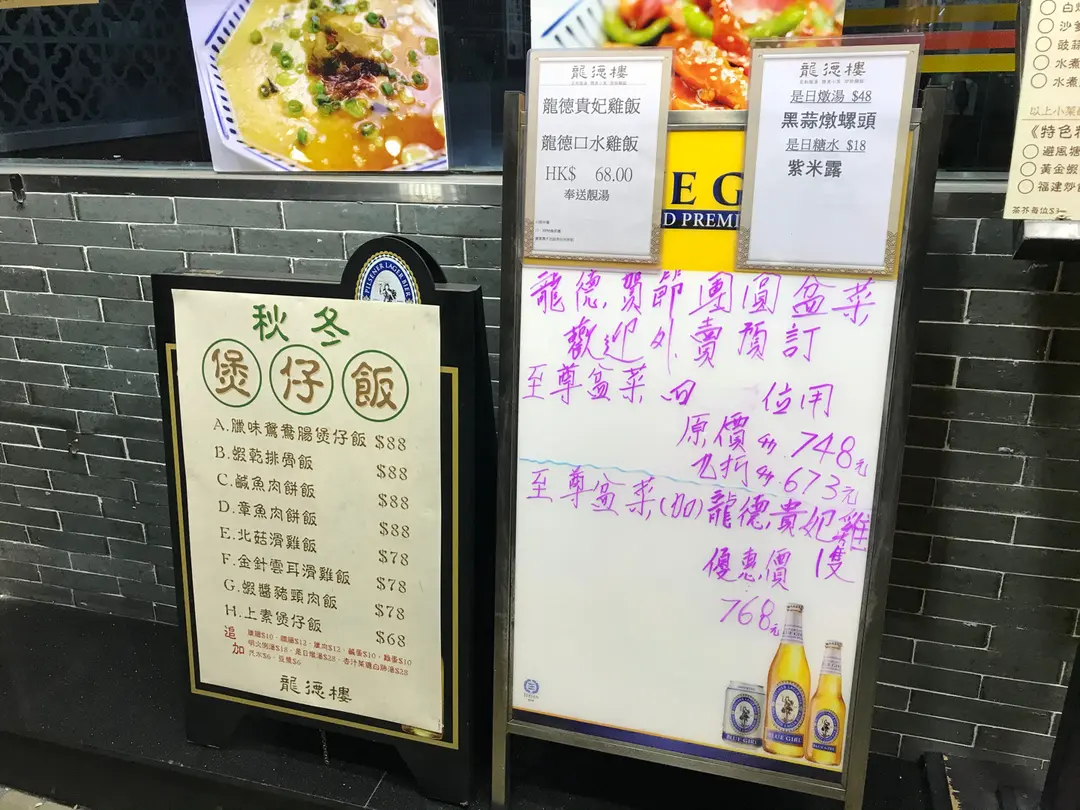 秋冬
煲仔飯
A.臘味鴛鴦腸煲仔飯 $88
B.蝦乾排骨飯 $88
C.鹹魚肉餅飯 $88
D.章魚肉餅飯 $88
E.北菇滑雞飯 $78
F.金針雲耳滑雞飯 $78
G.蝦醬豬頸肉飯 $78
H.上素煲仔飯 $68
追加
龍德樓
PILSENER LAGER BEER
龍德樓
龍德貴妃雞飯
龍德口水雞飯
HK$ 68.00
奉送靚湯
龍德樓
是日燉湯 $48
黑蒜燉螺頭
是日糖水 $18
紫米露
UE G
D PREMI
龍德賀節團圓盆菜
歡迎外賣預訂
至尊盆菜 四位用
原價 748元
九折 673元
至尊盆菜(加)龍德貴妃雞
1隻
優惠價
768元
BLUE GIRL
BLUE GIRL
以上小菜
《特色
避風塘
黃金蝦
福建炒
茶芥每位$3